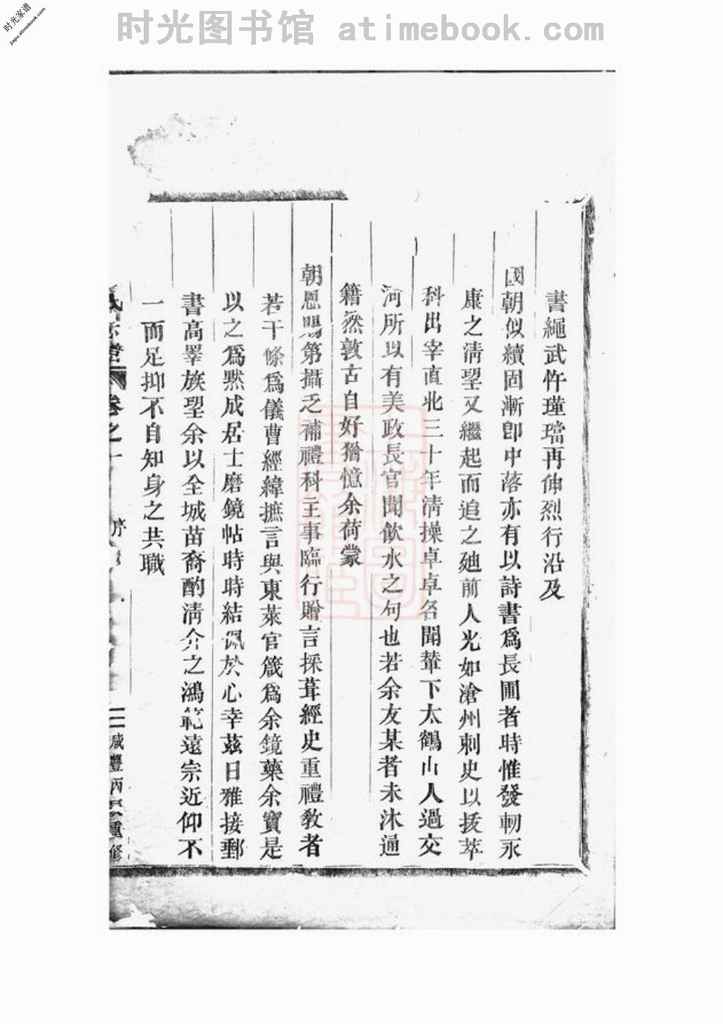 时光图书馆 atimebook.com
时光家谱
書繩武忤瑾璫再伸烈行沿及
國朝似續固漸卽中落亦有以詩書爲長圃者時惟發軔永
康之淸望又繼起而追之廸前人光如滄州刺史以拔萃
科出宰直北三十年淸操卓卓名聞輦下太鶴山人過交
河所以有美政長官聞飲水之句也若余友某者未沐通
籍然敦古自好猶憶余荷蒙
朝恩賜第攝乏補禮科主事臨行贈言採葺經史重禮敎者
若干條爲儀曹經緯摭言與東萊官箴爲余鏡藥余寶是
以之爲黙成居士磨鏡帖時時結佩於心幸茲日雅接鄞
書高睪族望余以全城苗裔酌淸介之鴻範遠宗近仰不
一而足抑不自知身之共職
氏宗譜 卷之一 序 咸豐丙辰重修